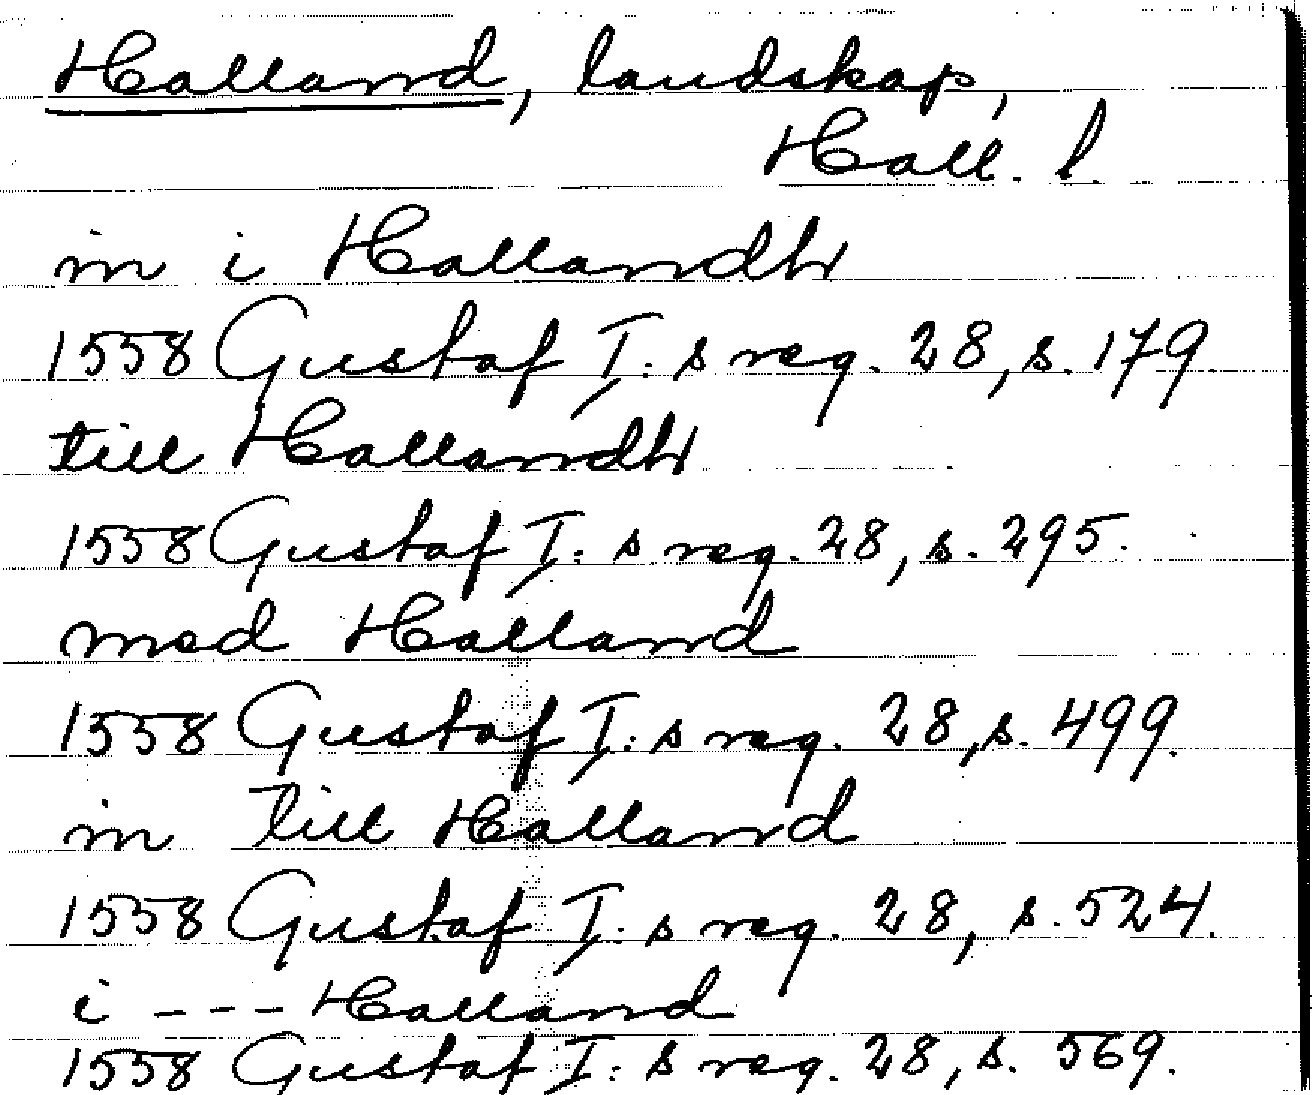 Halland, landskap,
Hall. l.
in i Hallandh
1558 Gustaf I:s reg. 28, s. 179
till Hallandh
1558 Gustaf I:s reg. 28, s. 295.
med Halland
1558 Gustaf I:s reg. 28, s. 499.
in till Halland
1558 Gustaf I:s reg. 28, s. 524.
i --- Halland
1558 Gustaf I:s reg. 28, s. 569.